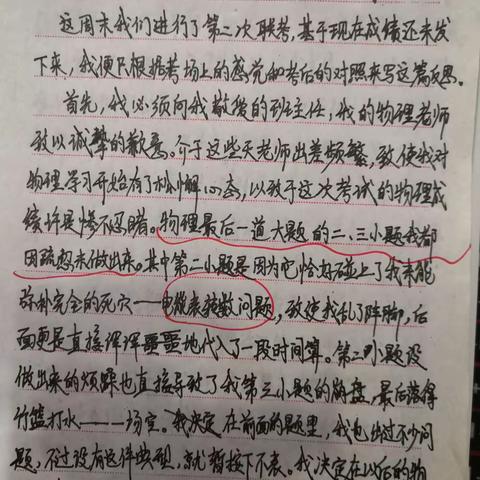 这周末我们进行了第二次联考,基于现在成绩还未发
下来,我便只根据考场上的感觉和考后的对照来写这篇反思。
首先,我必须向我敬爱的班主任,我的物理老师
致以诚挚的歉意。介于这些天老师出差频繁,致使我对
物理学习开始有了松懈心态,以致于这次考试的物理成
绩许是惨不忍睹。物理最后一道大题的二、三小题我都
因疏忽未做出来。其中第二小题是因为它恰好碰上了我未能
弥补完全的死穴——电能表转数问题,致使我乱了阵脚,后
面更是直接浑浑噩噩地代入了一段时间算。第二小题没
做出来的烦躁也直接导致了我第三小题的崩盘,最后落得
竹篮打水——场空。我决定在前面的题里,我也出过不少问
题,不过没有这件典型,就暂按下不表。我决定在以后的物